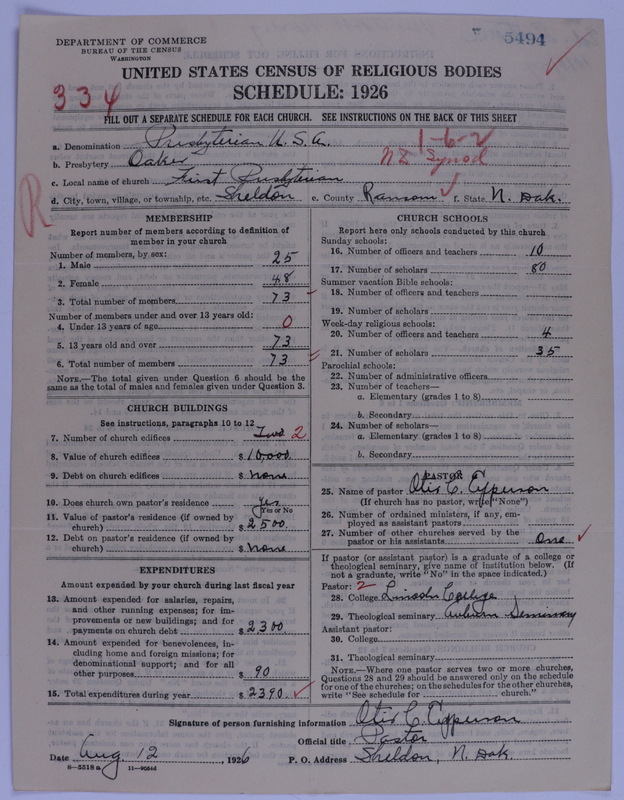 5494
DEPARTMENT OF COMMERCE
BUREAU OF THE CENSUS
WASHINGTON
UNITED STATES CENSUS OF RELIGIOUS BODIES
SCHEDULE: 1926
334
FILL OUT A SEPARATE SCHEDULE FOR EACH CHURCH. SEE INSTRUCTIONS ON THE BACK OF THIS SHEET
a. Denomination Presbyterian U.S.A. 1-6-2
b. Presbytery Oakes Synod
c. Local name of church First Presbyterian
d. City, town, village, or township, etc. Sheldon e. County Ransom f. State N. Dak.
R
MEMBERSHIP
Report number of members according to definition of
member in your church
Number of members, by sex:
1. Male 25
2. Female 48
3. Total number of members 73
Number of members under and over 13 years old:
4. Under 13 years of age 0
5. 13 years old and over 73
6. Total number of members 73
NOTE.—The total given under Question 6 should be the
same as the total of males and females given under Question 3.
CHURCH BUILDINGS
See instructions, paragraphs 10 to 12
7. Number of church edifices Two 2
8. Value of church edifices $ 10,000
9. Debt on church edifices $ none
10. Does church own pastor's residence Yes
(Yes or No)
11. Value of pastor's residence (if owned by
church) $ 2500
12. Debt on pastor's residence (if owned by
church) $ none
EXPENDITURES
Amount expended by your church during last fiscal year
13. Amount expended for salaries, repairs,
and other running expenses; for im-
provements or new buildings; and for
payments on church debt $ 2300
14. Amount expended for benevolences, in-
cluding home and foreign missions; for
denominational support; and for all
other purposes $ 90
15. Total expenditures during year $ 2390
CHURCH SCHOOLS
Report here only schools conducted by this church
Sunday schools:
16. Number of officers and teachers 10
17. Number of scholars 80
Summer vacation Bible schools:
18. Number of officers and teachers
19. Number of scholars
Week-day religious schools:
20. Number of officers and teachers 4
21. Number of scholars 35
Parochial schools:
22. Number of administrative officers
23. Number of teachers—
a. Elementary (grades 1 to 8)
b. Secondary
24. Number of scholars—
a. Elementary (grades 1 to 8)
b. Secondary
PASTOR
25. Name of pastor Otis C. Epperson
(If church has no pastor, write "None")
26. Number of ordained ministers, if any, em-
ployed as assistant pastors
27. Number of other churches served by the
pastor or his assistants One
If pastor (or assistant pastor) is a graduate of a college or
theological seminary, give name of institution below. (If
not a graduate, write "No" in the space indicated.)
Pastor: 2
28. College Lincoln College
29. Theological seminary Auburn Seminary
Assistant pastor:
30. College
31. Theological seminary
NOTE.—Where one pastor serves two or more churches,
Questions 28 and 29 should be answered only on the schedule
for one of the churches; on the schedules for the other churches,
write "See schedule for church."
Signature of person furnishing information Otis C. Epperson
Official title Pastor
Date Aug. 12, 1926 P. O. Address Sheldon, N. Dak.